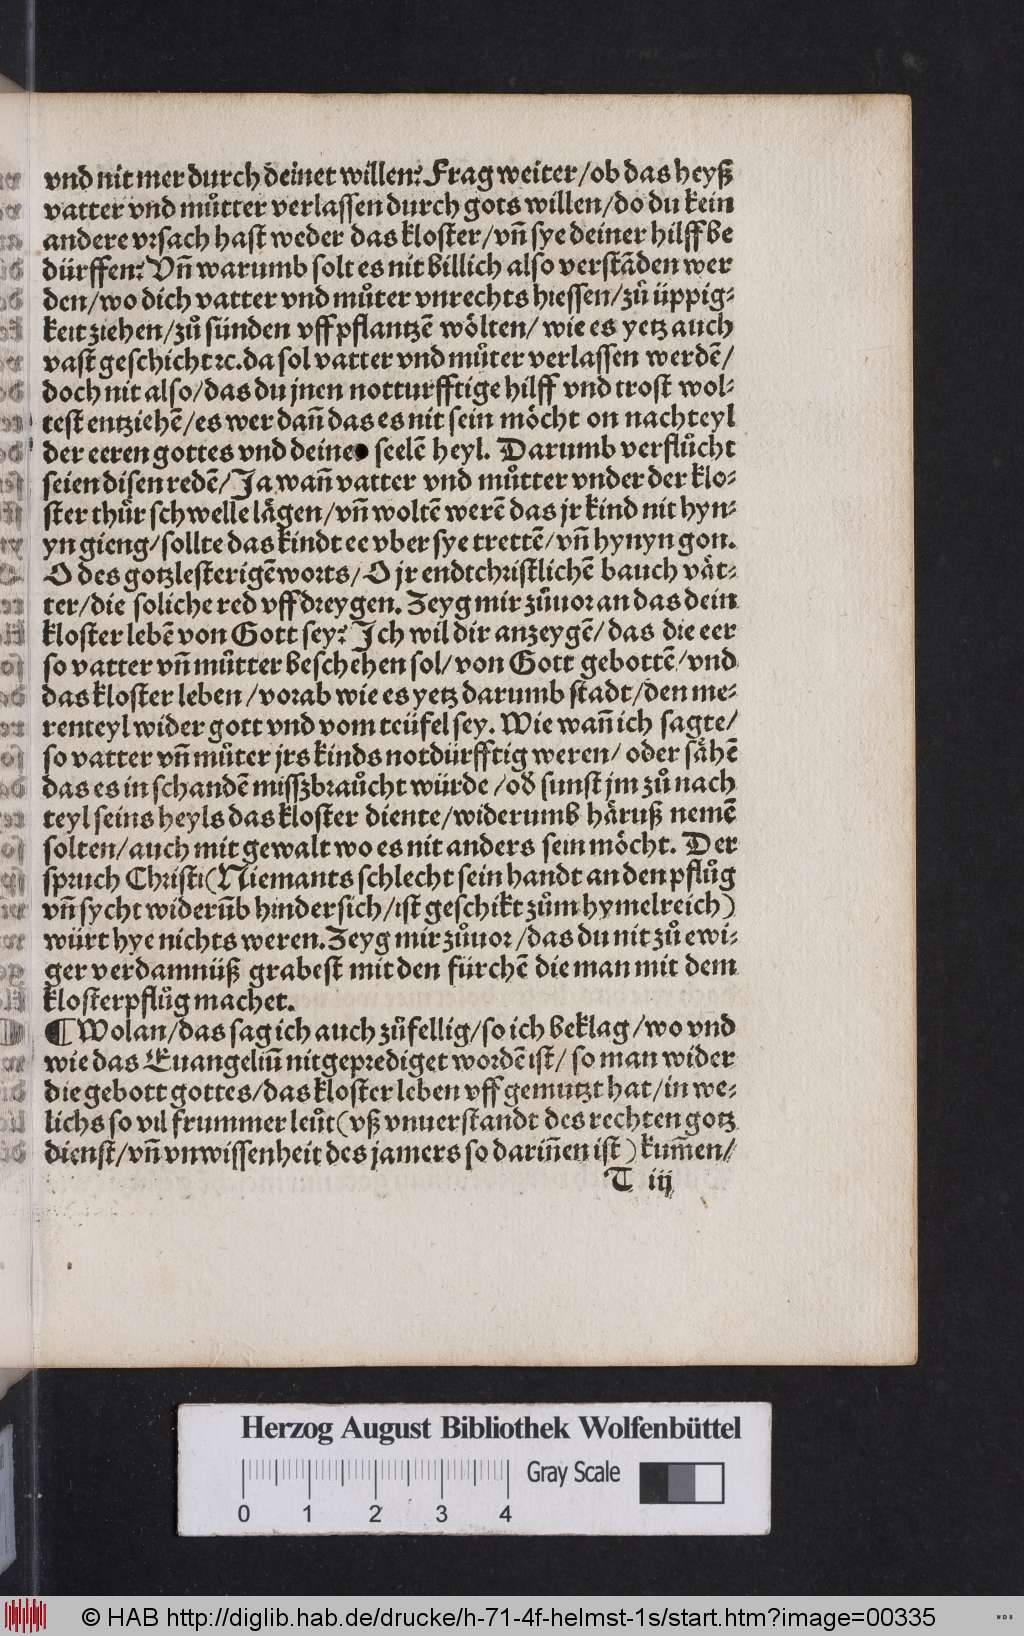 vnd nit mer durch deinet willen? Frag weiter/ob das heyß
vatter vnd můtter verlassen durch gots willen/do du kein
andere vrsach hast weder das kloster/vñ sye deiner hilff be
dürffen? Vñ warumb solt es nit billich also verstãden wer
den/wo dich vatter vnd můter vnrechts hiessen/zů üppig⸗
keit ziehen/zů sünden vff pflantzẽ wölten/ wie es yetz auch
vast geschicht ꝛc. da sol vatter vnd můter verlassen werdẽ/
doch nit also/das du jnen notturfftige hilff vnd trost wol⸗
test entziehẽ/es wer dañ das es nit sein möcht on nachteyl
der eeren gottes vnd deiner seelẽ heyl. Darumb verflůcht
seien disen redẽ/Ja wañ vatter vnd můtter vnder der klo⸗
ster thür schwelle lågen/vñ woltẽ werẽ das jr kind nit hyn⸗
yn gieng/sollte das kindt ee vber sye trettẽ/vñ hynyn gon.
O des gotzlesterigẽ worts/O jr endtchristlichẽ bauch våt⸗
ter/die soliche red vff dreygen. Zeyg mir zůuor an das dein
kloster lebẽ von Gott sey? Ich wil dir anzeygẽ/das die eer
so vatter vñ můtter beschehen sol/von Gott gebottẽ/vnd
das kloster leben/vorab wie es yetz darumb stadt/den me⸗
renteyl wider gott vnd vom teüfel sey. Wie wañ ich sagte/
so vatter vñ můter jrs kinds notdürfftig weren/oder såhẽ
das es in schandẽ misszbraůcht würde/oď sunst jm zů nach
teyl seins heyls das kloster diente/widerumb häruß nemẽ
solten/auch mit gewalt wo es nit anders sein möcht. Der
spruch Christi(Niemants schlecht sein handt an den pflůg
vñ sycht widerũb hindersich/ist geschikt zům hymelreich)
würt hye nichts weren. Zeyg mir zůuor/das du nit zů ewi⸗
ger verdamnüß grabest mit den fürchẽ die man mit dem
klosterpflůg machet.
¶ Wolan/das sag ich auch zůfellig/so ich beklag/wo vnd
wie das Euangeliũ nit geprediget wordẽ ist/ so man wider
die gebott gottes/das kloster leben vff gemutzt hat/in we⸗
lichs so vil frummer leůt(vß vnuerstandt des rechten gotz
dienst/vñ vnwissenheit des jamers so dariñen ist) kum̃en/
T iij
Herzog August Bibliothek Wolfenbüttel
Gray Scale
0 1 2 3 4
© HAB http://diglib.hab.de/drucke/h-71-4f-helmst-1s/start.htm?image=00335